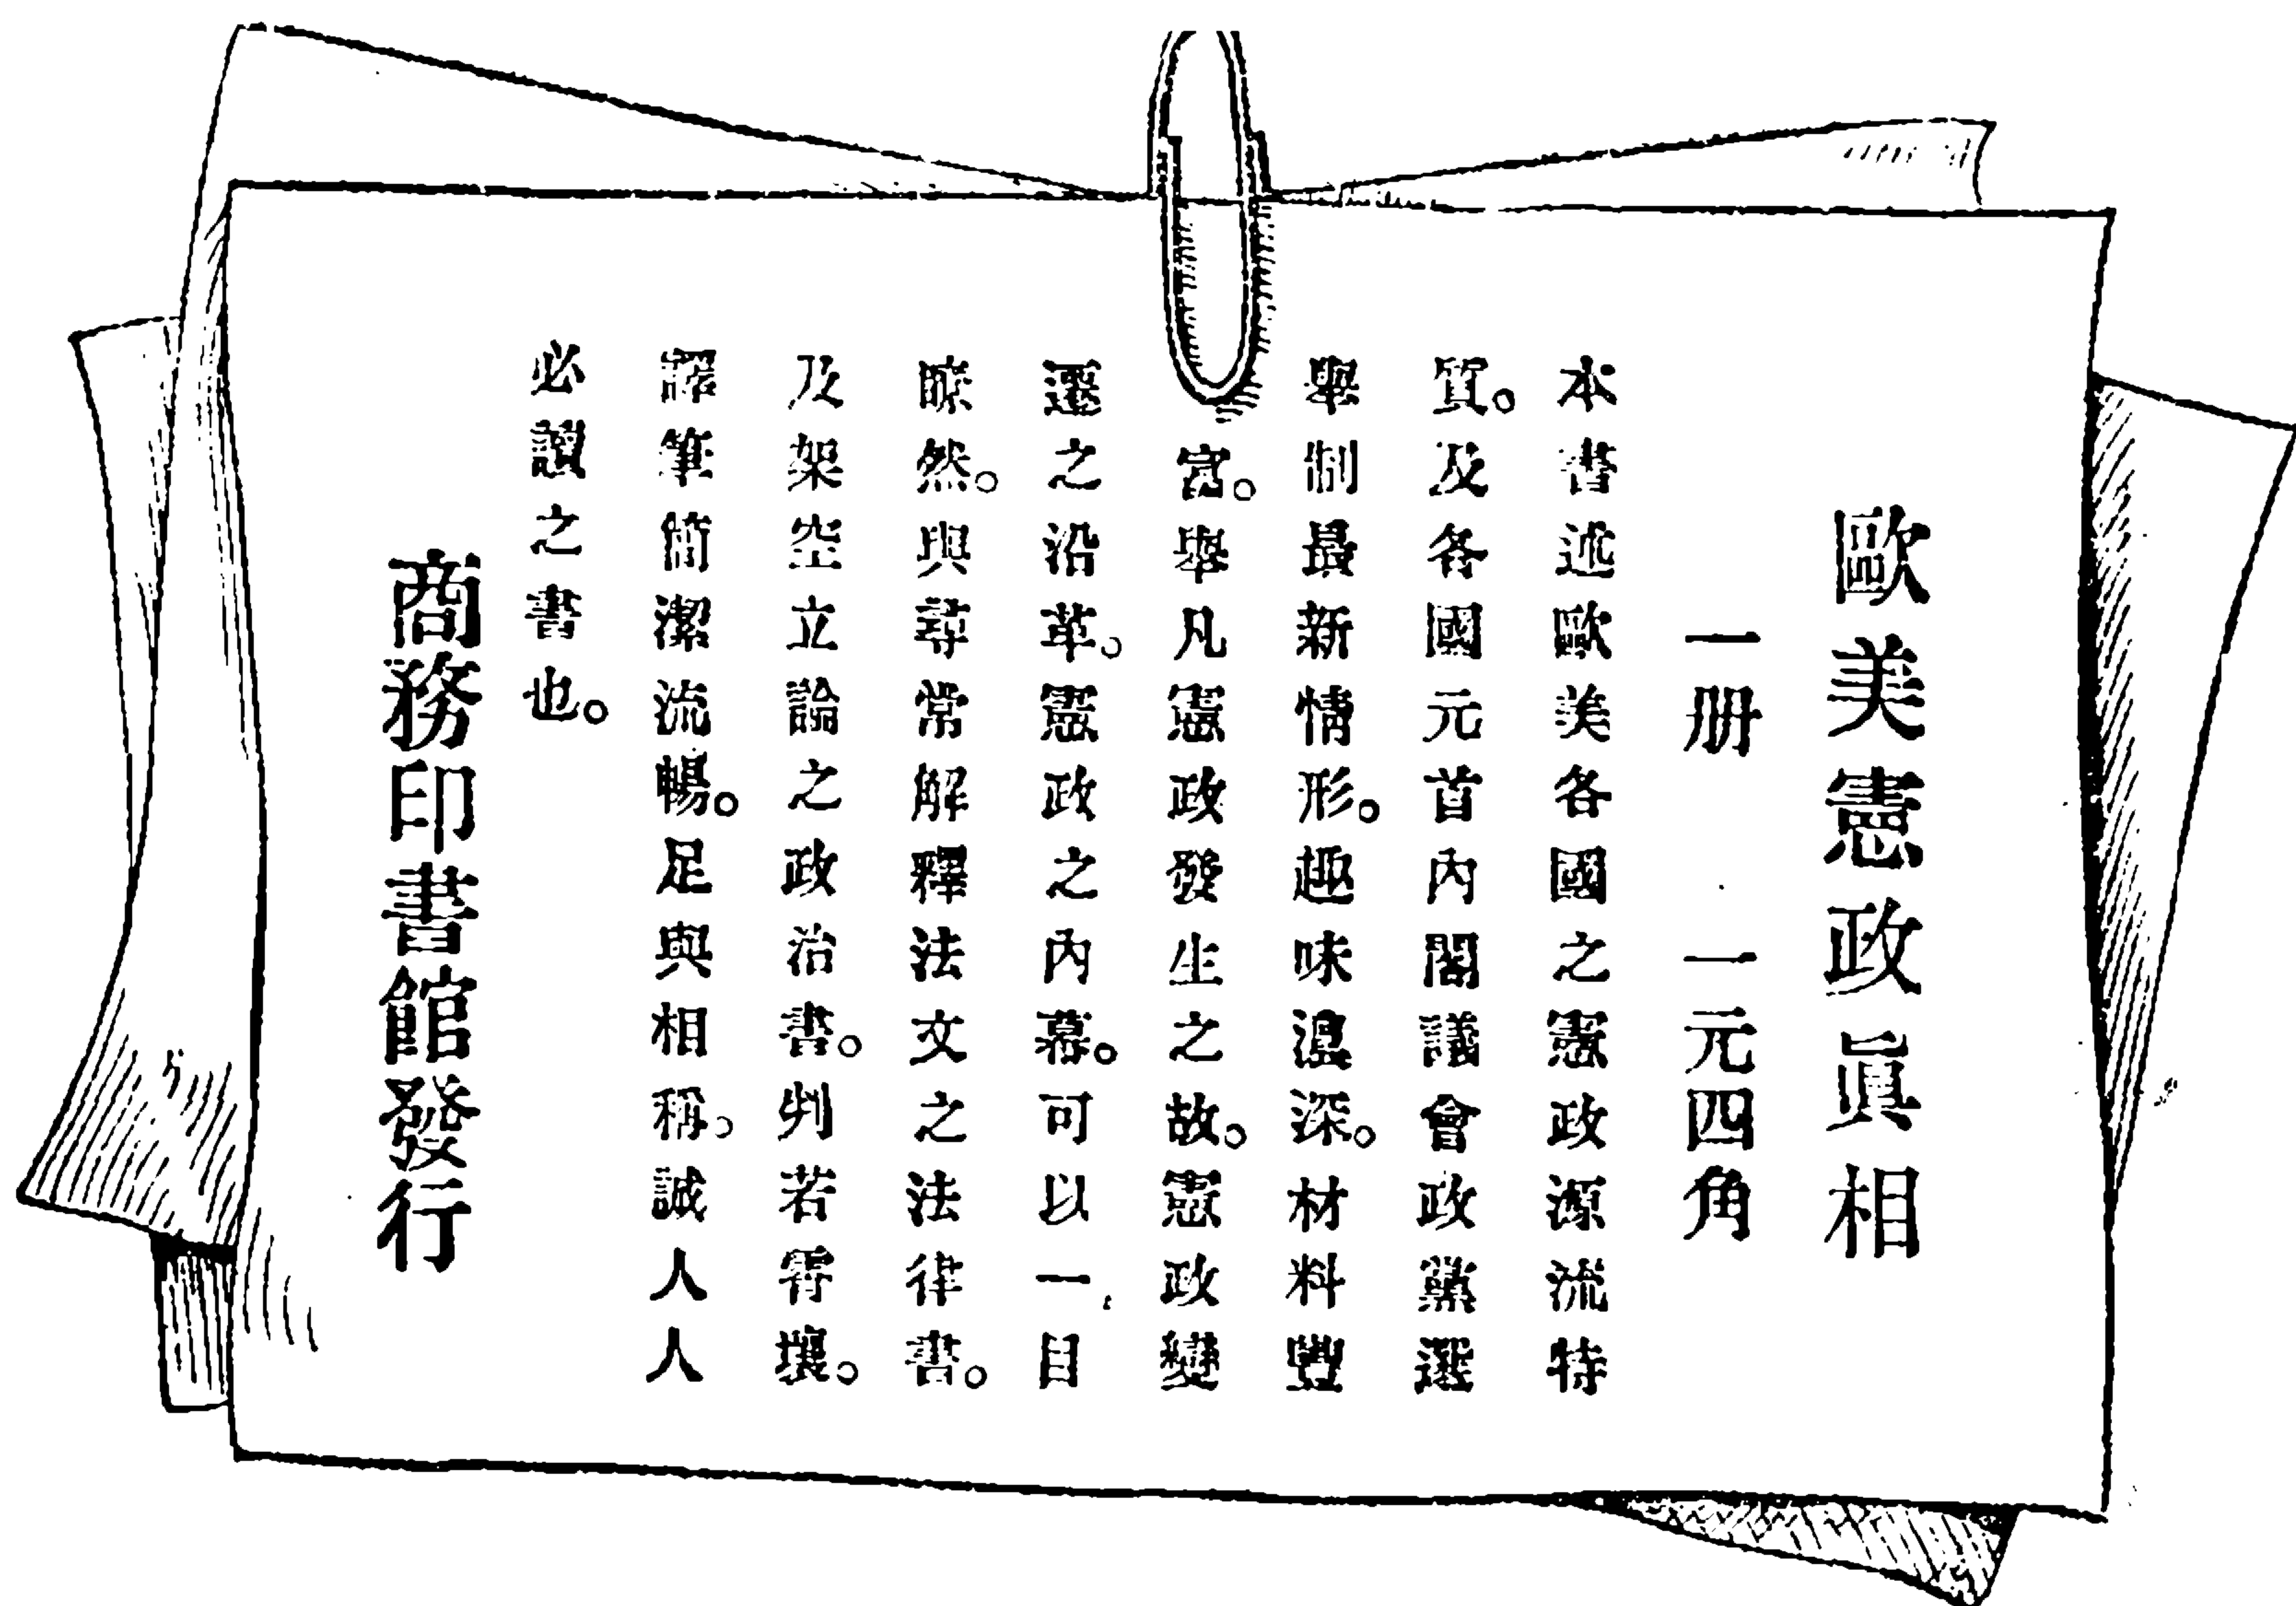 歐美憲政眞相
一册　一元四角
本書述歐美各國之憲政源流特
質。及各國元首內閣議會政黨選
舉制最新情形。趣味濃深。材料豐
富。舉凡憲政發生之故。憲政變
遷之沿革。憲政之內幕。可以一目
瞭然。與尋常解釋法文之法律書。
及架空立論之政治書。判若霄壤。
譯筆簡潔流暢。足與相稱。誠人人
必讀之書也。
商務印書館發行